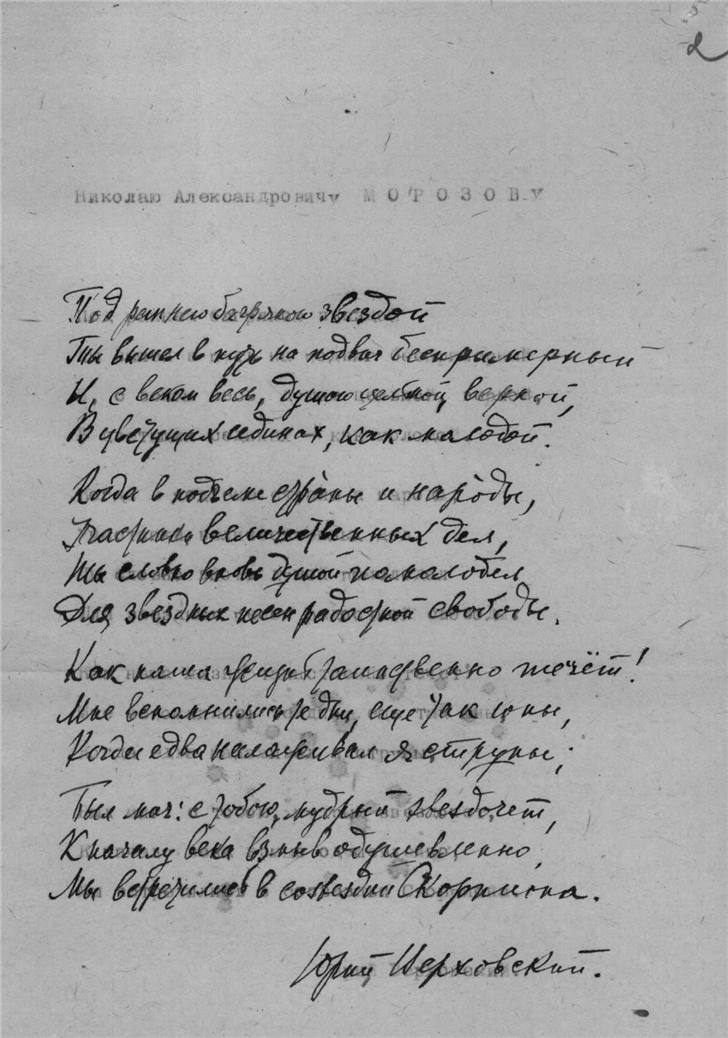 2
Николаю Александровичу МОРОЗОВУ
Под раннею багряною звездой
Ты вышел в путь на подвиг беспримерный
И, с веком весь, душою цельной, верной,
В цветущих сединах, как молодой.
Когда в подъеме страны и народы,
Участник величественных дел,
Ты словно вновь душой помолодел
Для звездных песен радостной свободы.
Как наша жизнь таинственно течёт!
Мне вспомнились те дни, еще так юны,
Когда едва налаживал я струны;
Был миг: с тобою, мудрый звездочет,
К началу века взмыв одушевленно,
Мы встретились в созвездии Скорпиона.
Юрий Верховский.